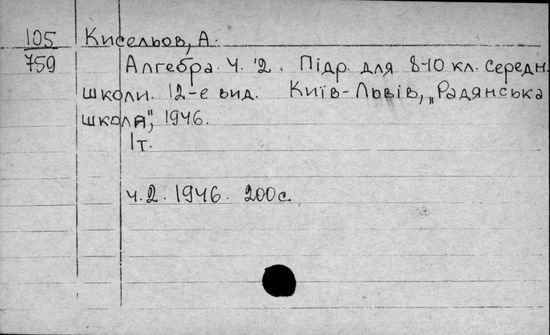 105 Кисельов, А.
759 Алгебра. Ч. 2. Підр. для 8-10 кл. середн.
школи. 12-е вид. Київ-Львів, „Радянська
школа", 1946.
1т.
ч.2. 1946. 200с.